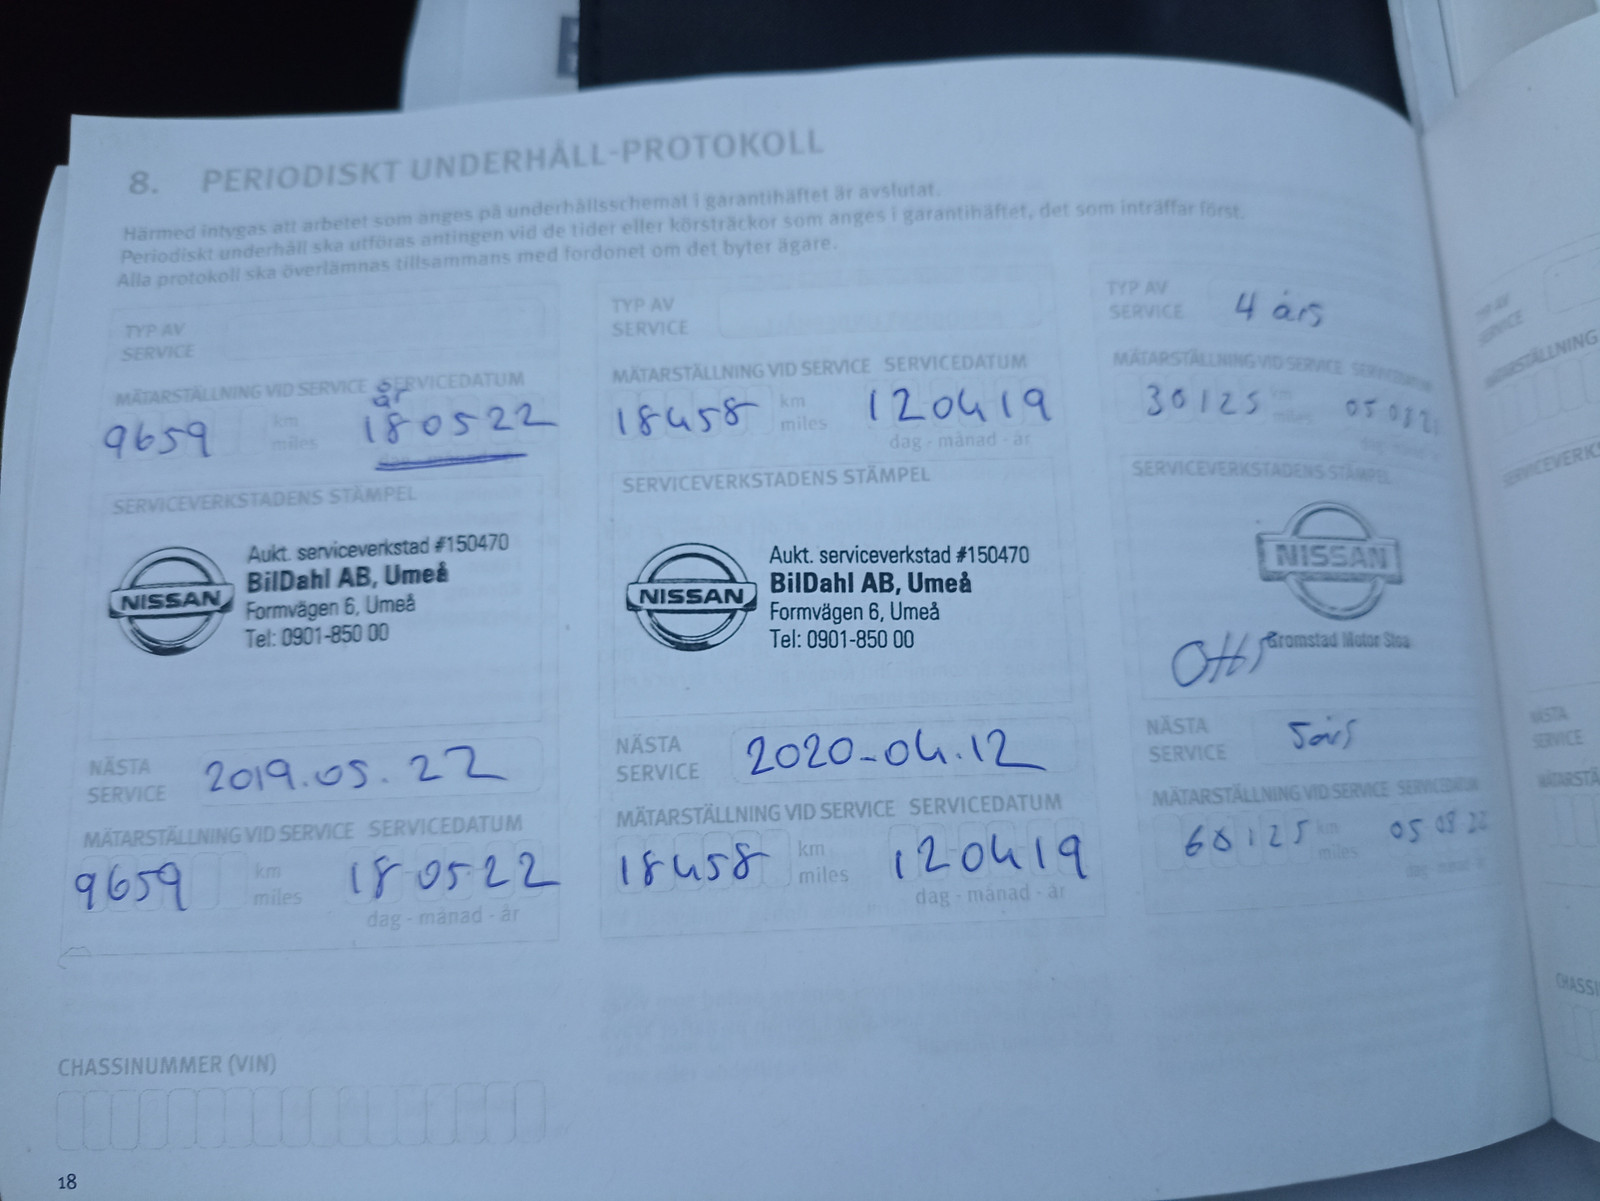 8. PERIODISKT UNDERHÅLL-PROTOKOLL
Härmed intygas att arbetet som anges på underhållsschemat i garantihäftet är avslutat.
Periodiskt underhåll ska utföras antingen vid de tider eller körsträckor som anges i garantihäftet, det som inträffar först.
Alla protokoll ska överlämnas tillsammans med fordonet om det byter ägare.
TYP AV
SERVICE
MÄTARSTÄLLNING VID SERVICE SERVICEDATUM
år
9659 km
miles
180522
SERVICEVERKSTADENS STÄMPEL
NISSAN
Aukt. serviceverkstad #150470
BilDahl AB, Umeå
Formvägen 6, Umeå
Tel: 0901-850 00
NÄSTA
SERVICE
2019.05.22
MÄTARSTÄLLNING VID SERVICE SERVICEDATUM
9659 km
miles
180522
dag - månad - år
TYP AV
SERVICE
MÄTARSTÄLLNING VID SERVICE SERVICEDATUM
18458 km
miles
120419
dag - månad - år
SERVICEVERKSTADENS STÄMPEL
NISSAN
Aukt. serviceverkstad #150470
BilDahl AB, Umeå
Formvägen 6, Umeå
Tel: 0901-850 00
NÄSTA
SERVICE
2020-04.12
MÄTARSTÄLLNING VID SERVICE SERVICEDATUM
18458 km
miles
120419
dag - månad - år
TYP AV
SERVICE
4 års
MÄTARSTÄLLNING VID SERVICE SERVICEDATUM
30125 km
miles
SERVICEVERKSTADENS STÄMPEL
NISSAN
Motor
NÄSTA
SERVICE
5 års
MÄTARSTÄLLNING VID SERVICE SERVICEDATUM
60125 km
miles
05 08 22
CHASSINUMMER (VIN)
18